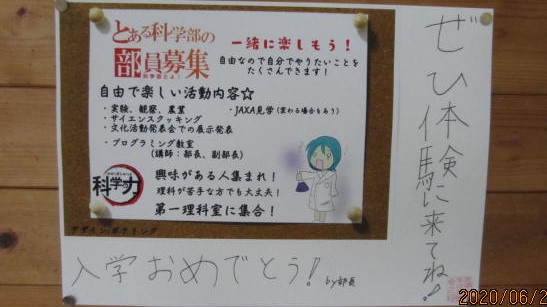 とある科学部の
部員募集
科学部だよ!
一緒に楽しもう!
自由なので自分でやりたいことを
たくさんできます!
自由で楽しい活動内容☆
・実験、観察、農業
・JAXA見学(変わる場合もあり)
・サイエンスクッキング
・文化活動発表会での展示発表
・プログラミング教室
(講師:部長、副部長)
科学の力
興味がある人集まれ!
理科が苦手な方でも大丈夫!
第一理科室に集合!
ぜひ体験に来てね!
入学おめでとう! by部長
2020/06/2